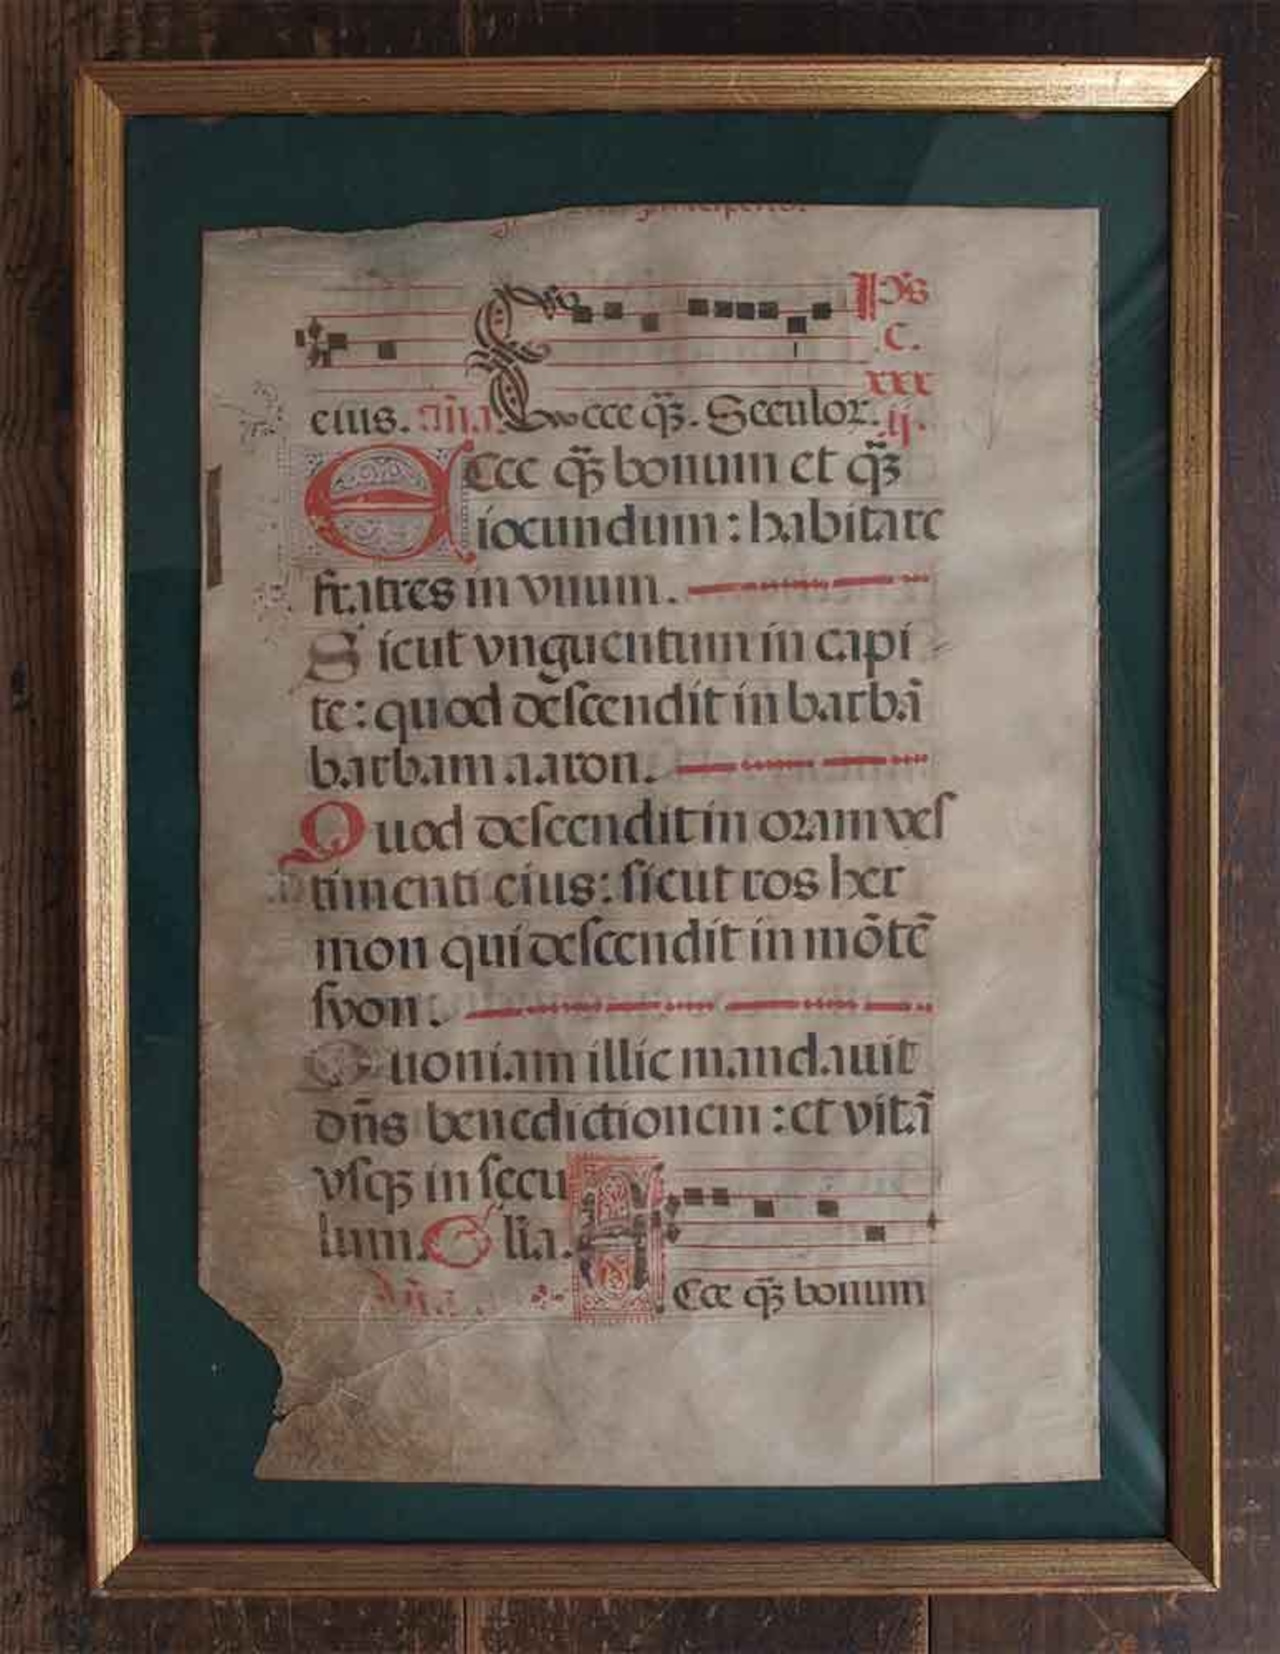 ps
.C.
xxx
ij.
eius. añ.a Ecce q̄ꝫ. Seculor.
Ecce q̄ꝫ bonum et q̄ꝫ
iocundum : habitare
fratres in vnum.
Sicut vnguentum in capi
te : quod deſcendit in barbā
barbam aaron.
Quod deſcendit in oram veſ
timenti eius : ſicut ros her
mon qui deſcendit in mōtē
ſyon.
Quoniam illic mandauit
dñs benedictionem : et vitā
vſqꝫ in ſecu
lum. Glia.
Añ.a Ecce q̄ꝫ bonum